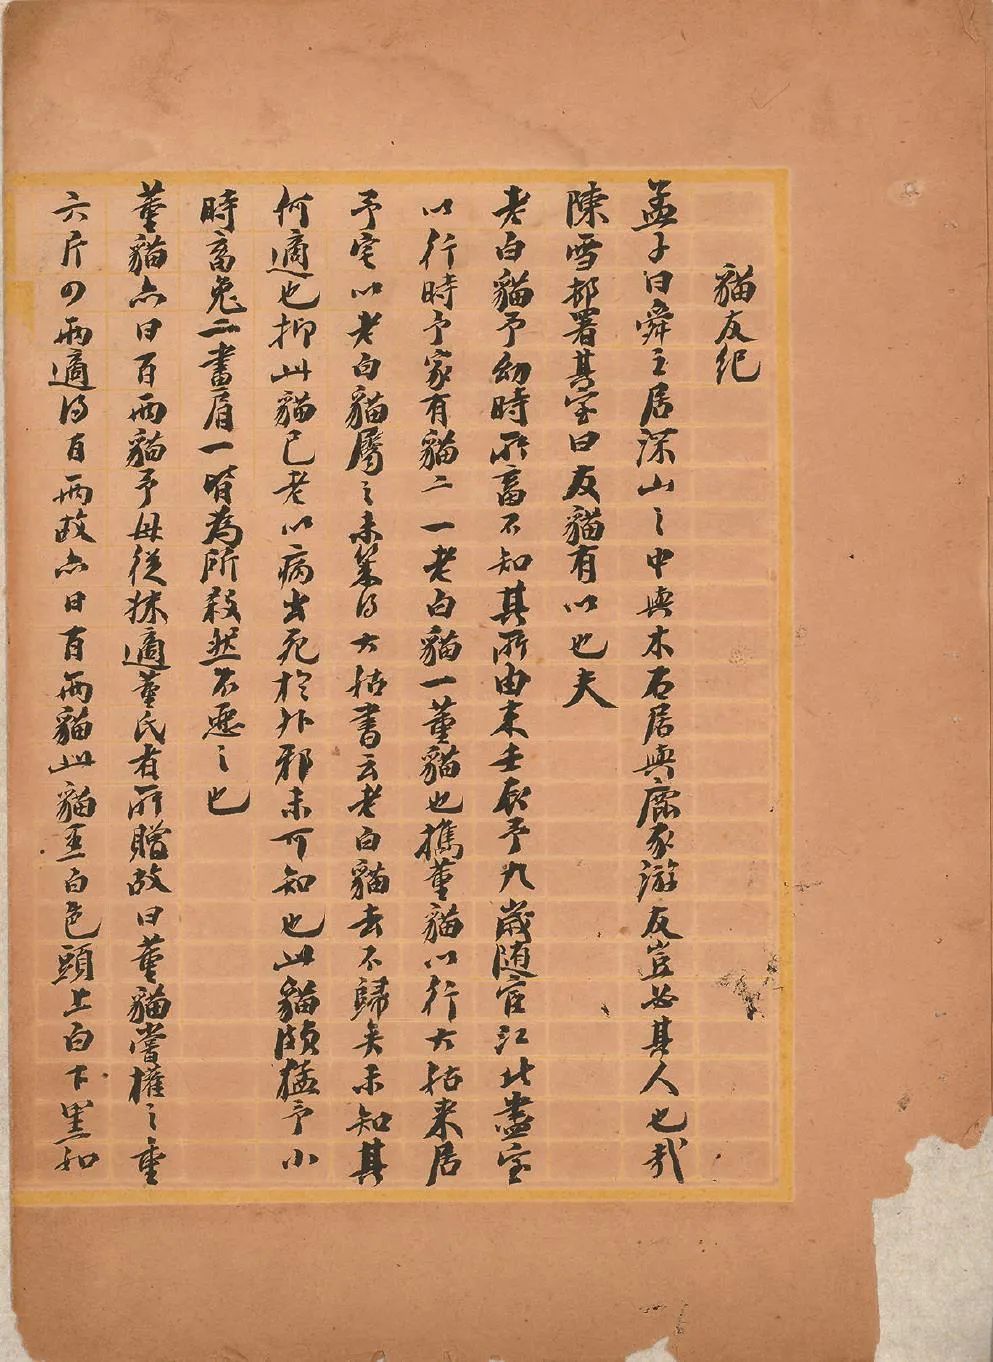 貓友紀
孟子曰舜之居深山之中與木石居與鹿豕游友豈必其人也哉
陳雪邨署其室曰友貓有以也夫
老白貓予幼時所畜不知其所由來壬辰予九歲随宦江北盡室
以行時予家有貓二一老白貓一董貓也攜董貓以行大姑來居
予宅以老白貓屬之未幾得大姑書云老白貓去不歸矣未知其
何適也抑此貓已老以病出死於外邪未可知也此貓頗猛予小
時畜兔二畫眉一皆為所殺然不惡之也
董貓亦曰百兩貓予母從妹適董氏有所贈故曰董貓嘗權之重
六斤四兩適得百兩故亦曰百兩貓此貓亟白色頭上白下黑如